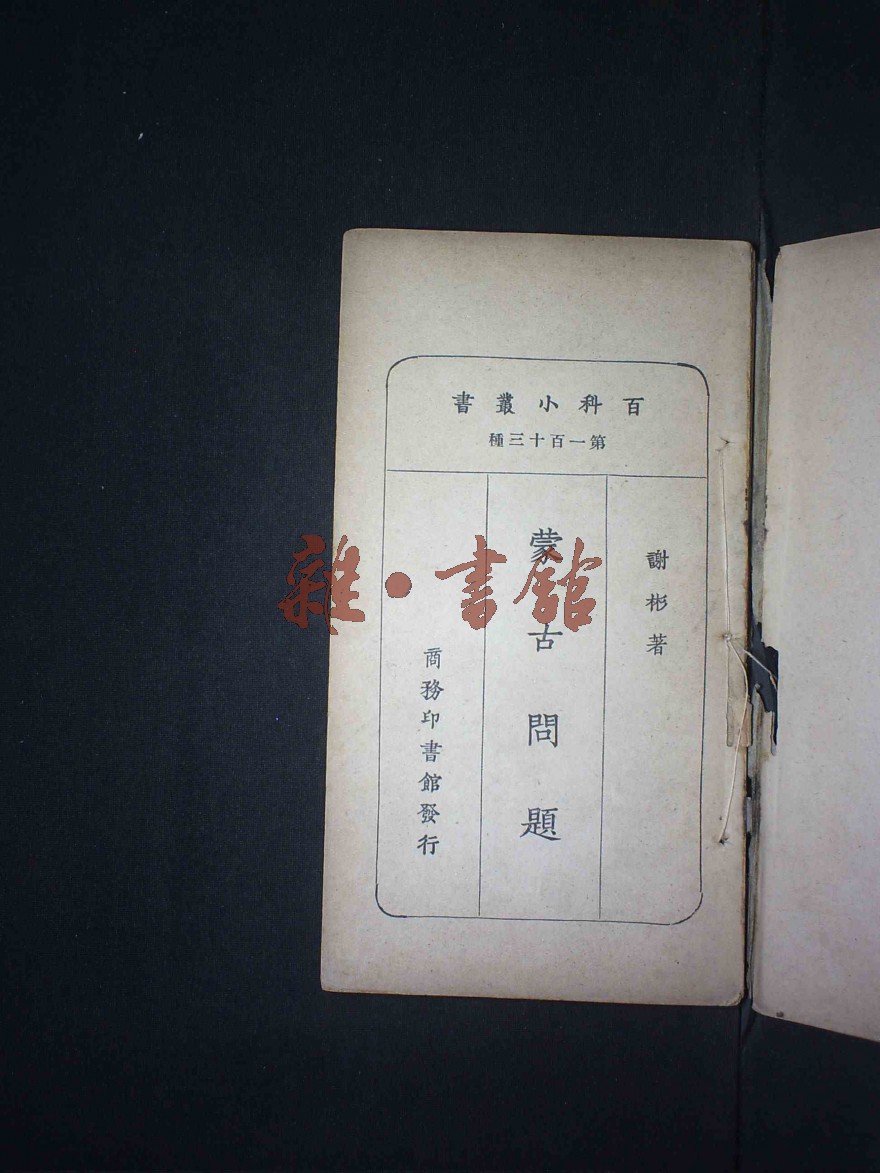 百科小叢書
第一百十三種
謝彬著
蒙古問題
商務印書館發行
雜·書館